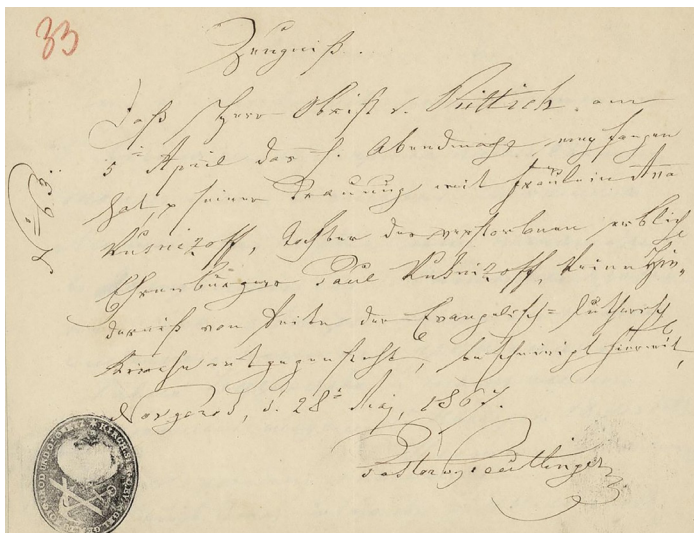 33
Zeugniß.
Daß Herr Obrist v. Püttich am
5ten April das h. Abendmahl empfangen
hat, seiner Trauung mit Fräulein Anna
Kusnezoff, Tochter des verstorbenen erblich
Ehrenbürgers Paul Kusnezoff, keine Hin-
derniß von Seite der Evangelisch-Lutherisch
Kirche entgegensteht, bescheinigt hiermit,
d. 28ten Mai, 1867.
Pastor